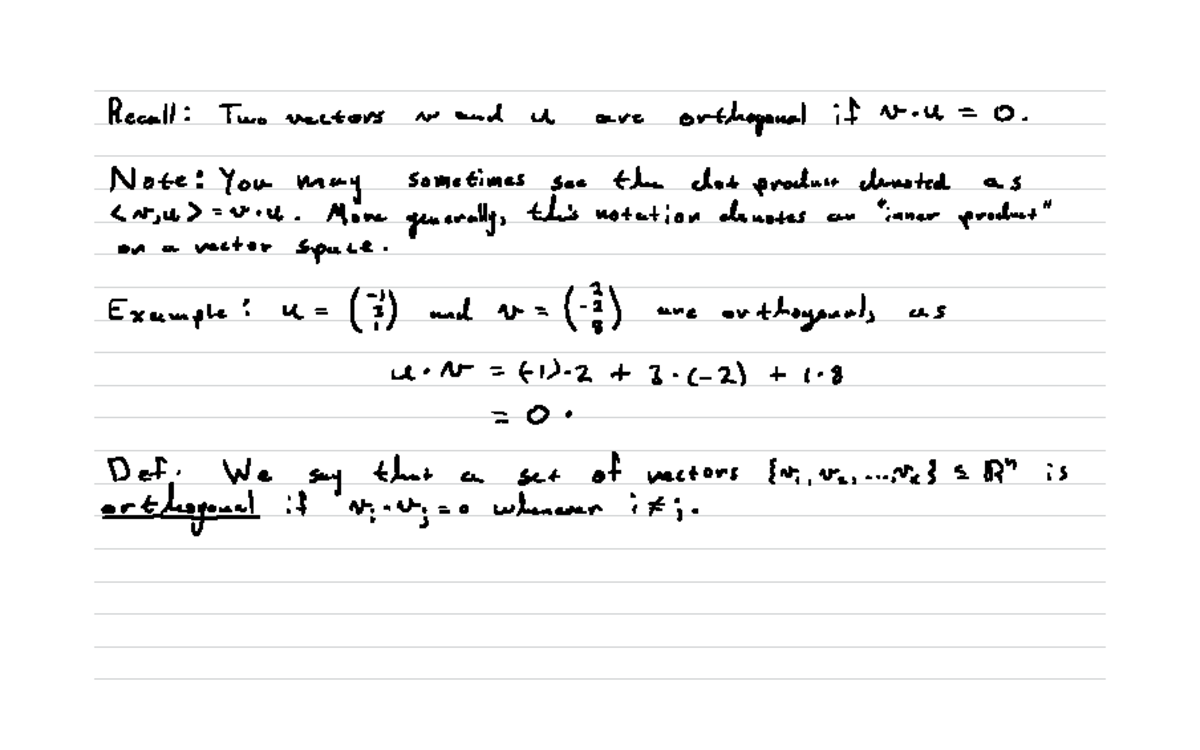 Recall: Two vectors v and u are orthogonal if v·u = 0.
Note: You may sometimes see the dot product denoted as
<v,u> = v·u. More generally, this notation denotes an "inner product"
on a vector space.
Example: u = (-1 3 1) and v = (2 -2 8) are orthogonal, as
u·v = (-1)·2 + 3·(-2) + 1·8
= 0.
Def. We say that a set of vectors {v₁, v₂, ..., vₖ} ⊆ ℝⁿ is
orthogonal if vᵢ·vⱼ = 0 whenever i ≠ j.